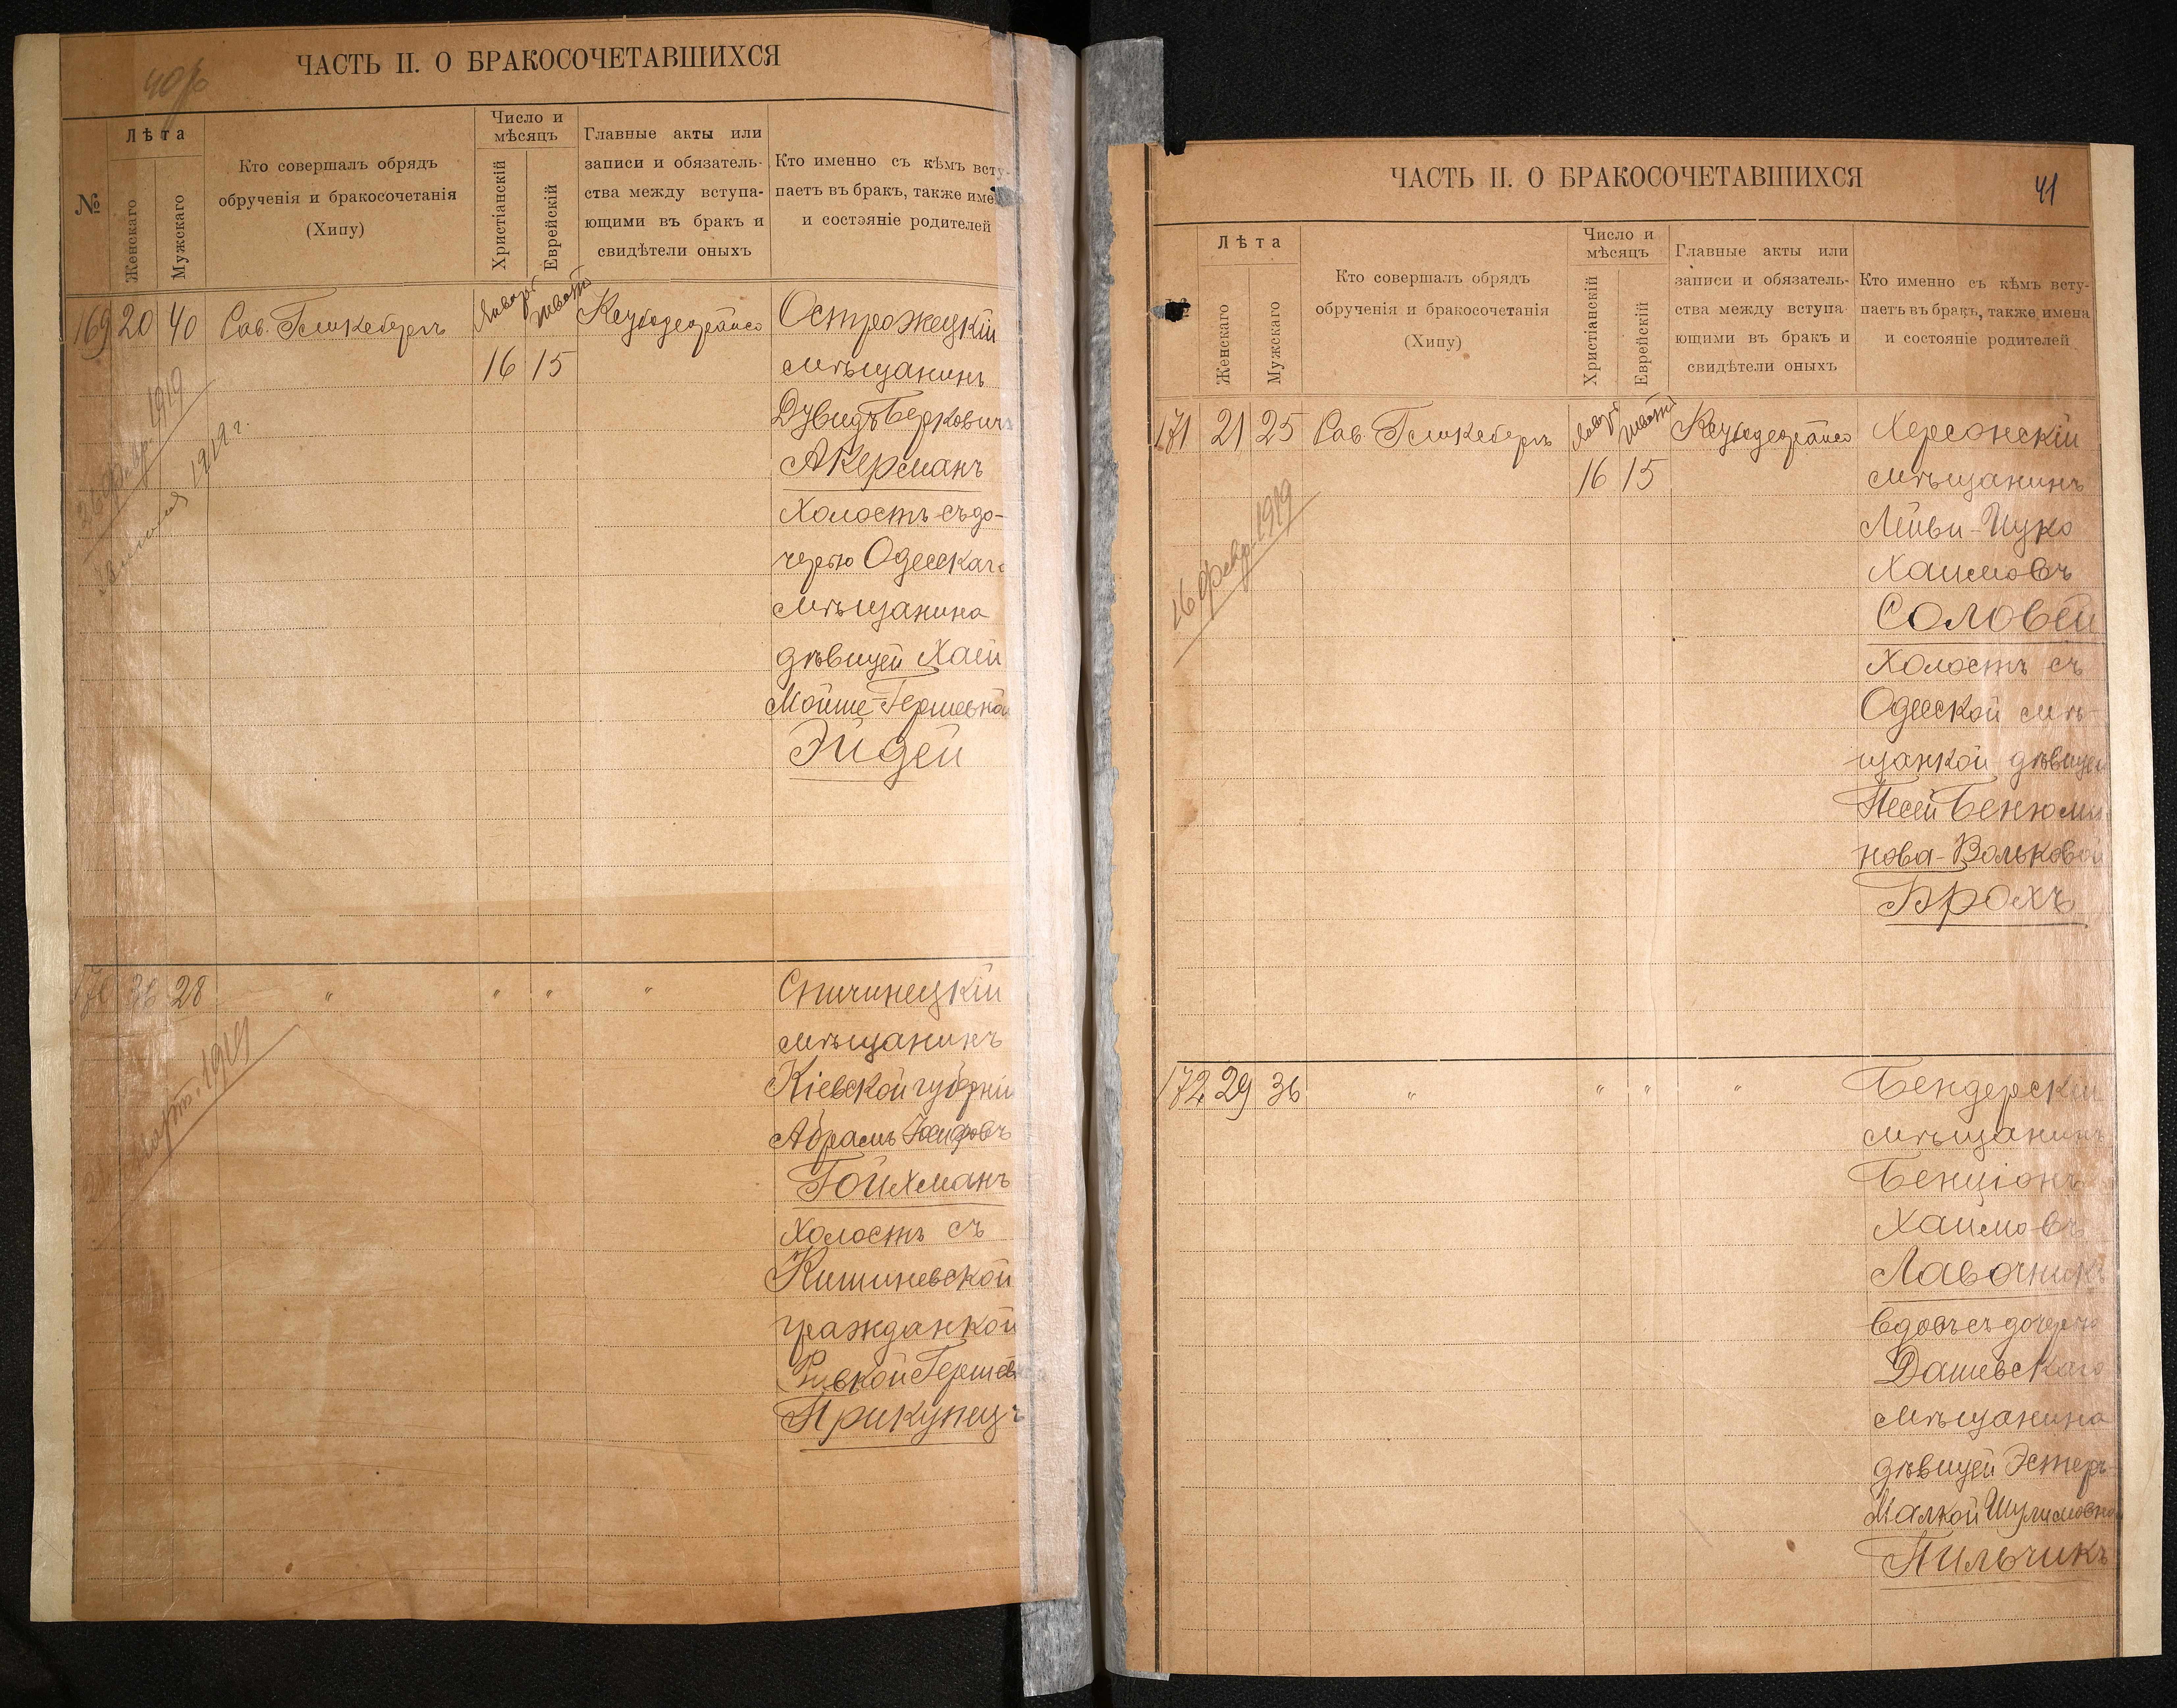 40об
ЧАСТЬ II. О БРАКОСОЧЕТАВШИХСЯ
№
Лѣта
Женскаго
Мужскаго
Кто совершалъ обрядъ
обрученія и бракосочетанія
(Хипу)
Число и
мѣсяцъ
Христіанскій
Еврейскій
Главные акты или
записи и обязатель-
ства между вступа-
ющими въ бракъ и
свидѣтели оныхъ
Кто именно съ кѣмъ всту-
паетъ въ бракъ, также име
и состэяніе родителей
169 20 40
Январь
16
15
Острожецкій
мѣщанинъ
Дувидъ Берковичъ
Акерманъ
Холостъ съ до-
черью Одесскаго
мѣщанина
дѣвицей Хаей
Мойше-Гершевной
Эйдей
1919
1919 г.
170 36 28 " " " "
Спичинецкій
мѣщанинъ
Кіевской губерніи
Абрамъ Іосифовъ
Гойхманъ
Холостъ съ
Кишиневской
гражданкой
Ривкой Гершев
Прикупецъ
марта 1919
ЧАСТЬ II. О БРАКОСОЧЕТАВШИХСЯ
41
Лѣта
Женскаго
Мужскаго
Кто совершалъ обрядъ
обрученія и бракосочетанія
(Хипу)
Число и
мѣсяцъ
Христіанскій
Еврейскій
Главные акты или
записи и обязатель-
ства между вступа-
ющими въ бракъ и
свидѣтели оныхъ
Кто именно съ кѣмъ всту-
паетъ въ бракъ, также имена
и состояніе родителей
171 21 25
Январь
16
15
Херсонскій
мѣщанинъ
Лейви-Ицко
Хаимовъ
Соловей
Холостъ съ
Одесской мѣ-
щанкой дѣвицей
Песей Бенюми
нова-Вольковой
Брохъ
16 февр. 1919
172 29 36 " " " "
Бендерскій
мѣщанинъ
Бенціонъ
Хаимовъ
Лавочникъ
вдовъ съ дочерью
Дашевскаго
мѣщанина
дѣвицей Эстеръ-
Малкой Шулимовной
Пильчикъ